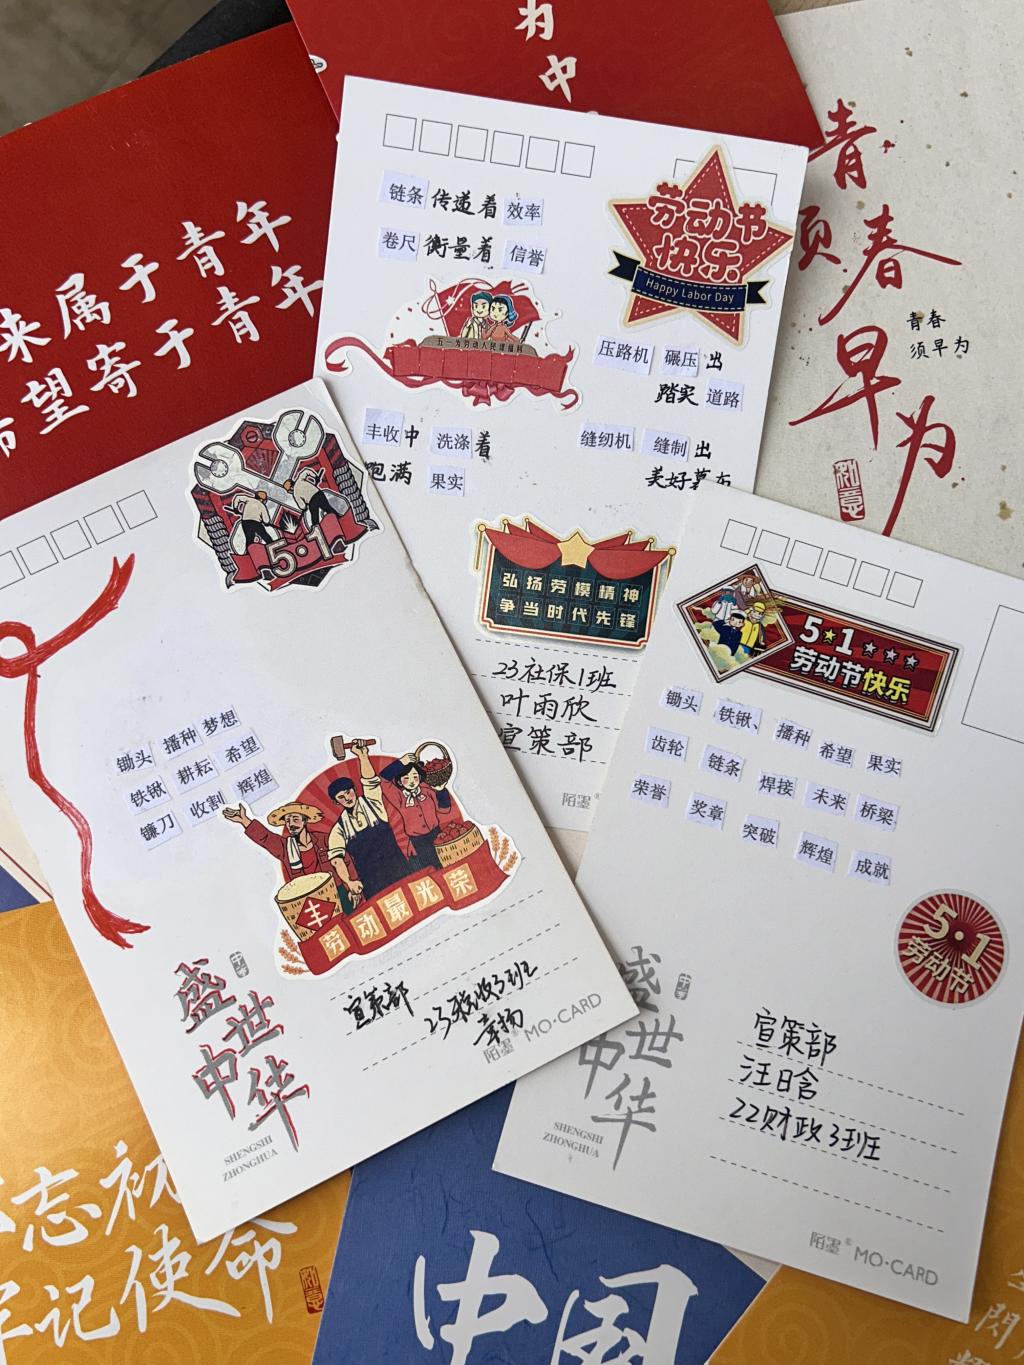 为中
来属于青年
希望寄于青年
青春
须早为
青春
须早为
知意
链条 传递着 效率
卷尺 衡量着 信誉
劳动节
快乐
Happy Labor Day
五一为劳动人民谋福利
压路机 碾压 出
踏实 道路
丰收 中 洗涤 着
饱满 果实
缝纫机 缝制 出
美好
弘扬劳模精神
争当时代先锋
23社保1班
叶雨欣
宣策部
陌墨
5·1
锄头 播种 梦想
铁锹 耕耘 希望
镰刀 收割 辉煌
丰
劳动最光荣
宣策部
23税收3班
章扬
中华
盛世
中华
SHENGSHI
ZHONGHUA
陌墨® MO·CARD
5★1
劳动节快乐
锄头 铁锹、 播种 希望 果实
齿轮 链条 焊接 未来 桥梁
荣誉 奖章 突破 辉煌 成就
5·1
劳动节
宣策部
汪日含
22财政3班
盛世
中华
SHENGSHI
ZHONGHUA
陌墨® MO·CARD
忘初
牢记使命
知意
中国